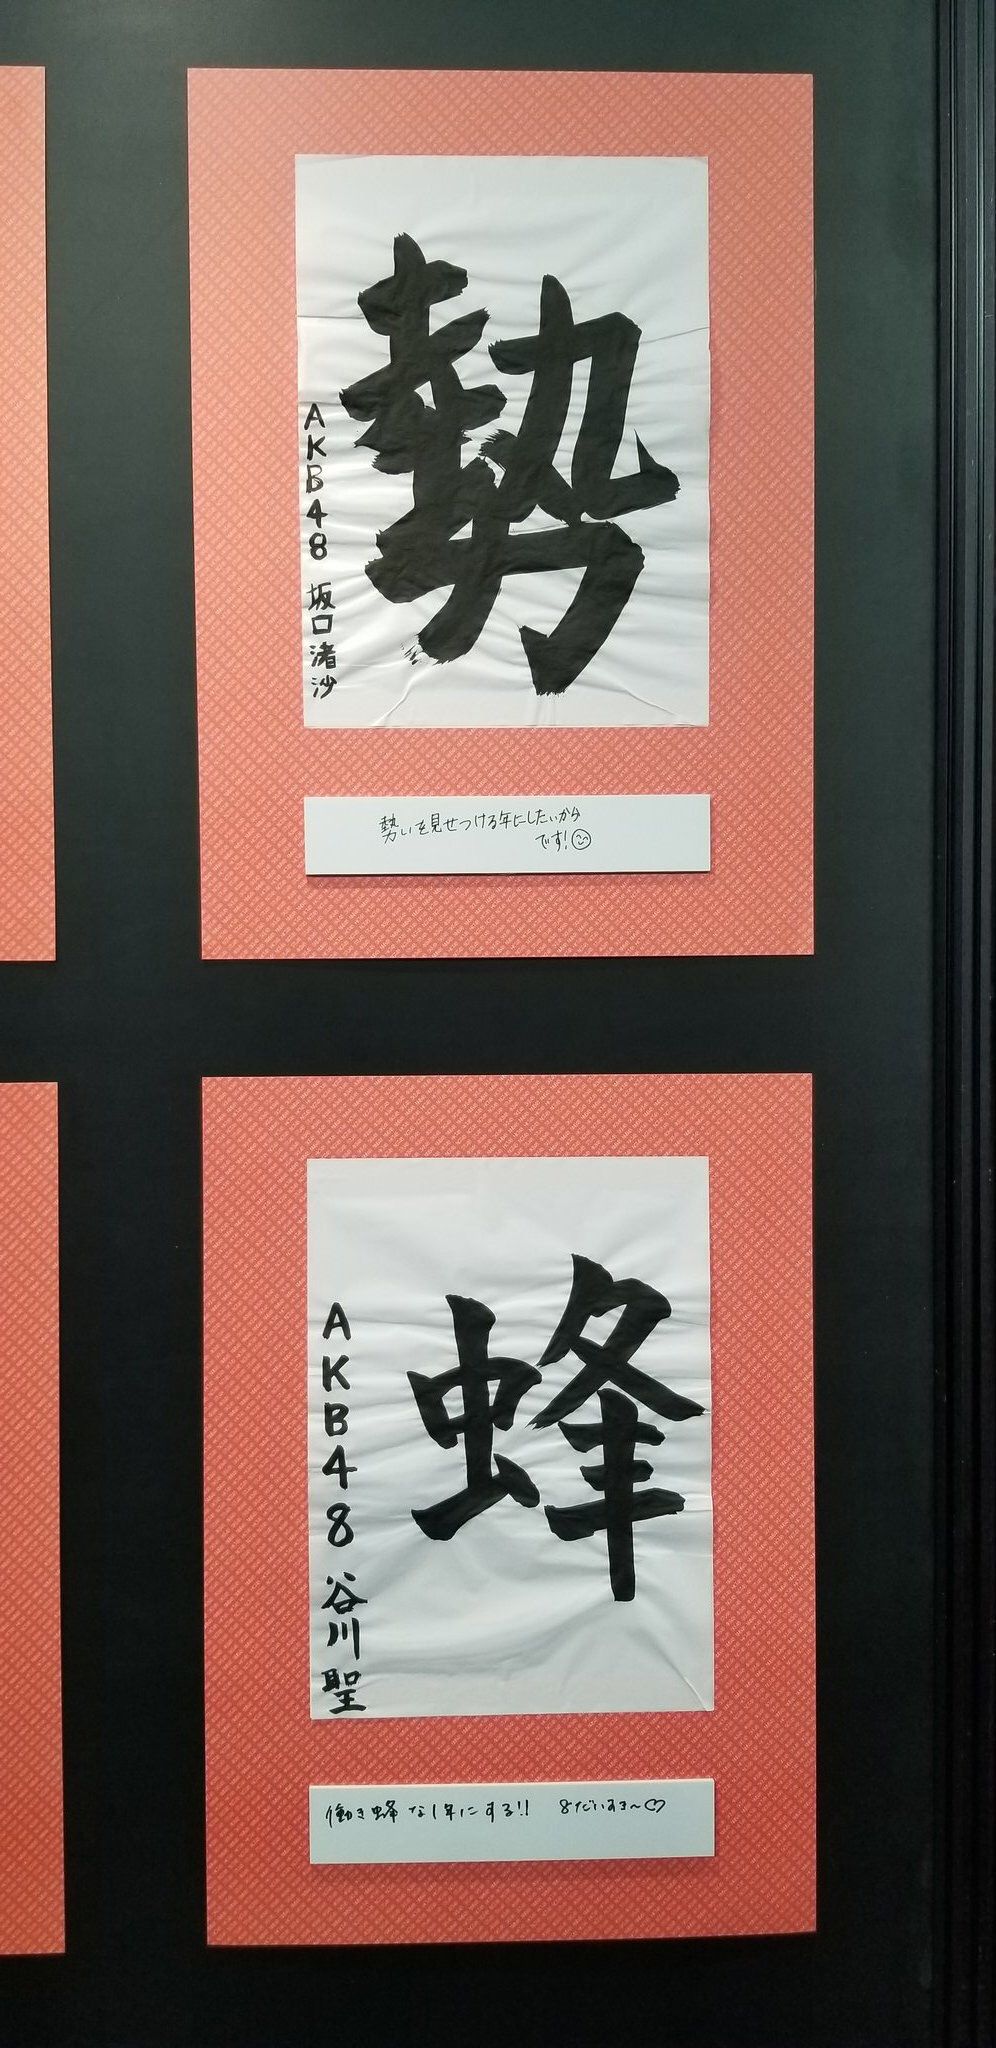 勢
AKB48 坂口渚沙
勢いを見せつける年にしたいから
です!
蜂
AKB48 谷川聖
働き蜂な1年にする!! 8だいすき〜♡